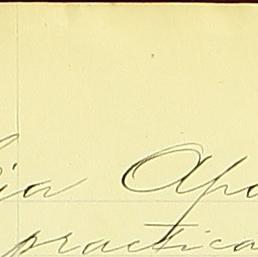 ia Apo
practica